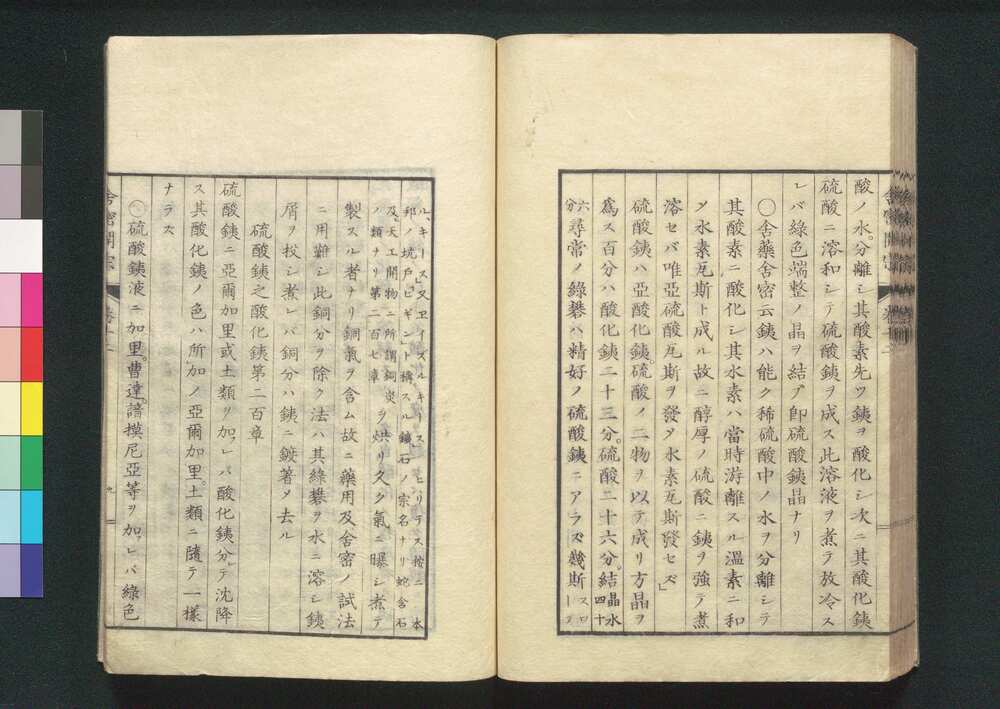 酸ノ水。分離シ其酸素先ツ鉄ヲ酸化シ次ニ其酸化鉄
硫酸ニ溶和シテ硫酸鉄ヲ成ス此溶液ヲ煮テ放冷ス
レバ緑色端整ノ晶ヲ結ブ即硫酸鉄晶ナリ
〇舎薬舎密云鉄ハ能ク稀硫酸中ノ水ヲ分離シテ
其酸素ニ酸化シ其水素ハ當時游離スル温素ニ和
メ水素瓦斯ト成ル故ニ醇厚ノ硫酸ニ鉄ヲ強テ煮
溶セバ唯亜硫酸瓦斯ヲ發メ水素瓦斯發セズ」
硫酸鉄ハ亜酸化鉄硫酸ノ二物ヲ以テ成リ方晶ヲ
爲ス百分ハ酸化鉄二十三分。硫酸二十六分。結晶水四十
六分尋常ノ緑礬ハ精好ノ硫酸鉄ニアラズ幾斯
ル、キース」又卫イズルキース」ヒリテス按ニ本
邦ノ坑戸ビンギン」ト構スル鑛石ノ宗名ナリ蛇含石
及天工開物ニ所謂銅炭
ノ類ナリ第二百七章ヲ烘リ久ク氣ニ曝シ煮テ
製スル者ナリ銅氣ヲ含ム故ニ藥用及舎密ノ試法
ニ用難シ此銅分ヲ除ク法ハ其緑礬ヲ水ニ溶シ鉄
屑ヲ投シ煮レバ銅分ハ鉄ニ鍍著メ去ル
硫酸鉄之酸化鉄第二百章
硫酸鉄ニ亜爾加里或土類ヲ加レバ酸化鉄分テ沈降
ス其酸化鉄ノ色ハ所加ノ亜爾加里。土類ニ隨テ一様
ナラズ
硫酸鉄液ニ加里。曹達。諳摸尼亜等ヲ加レバ緑色
舎密開宗